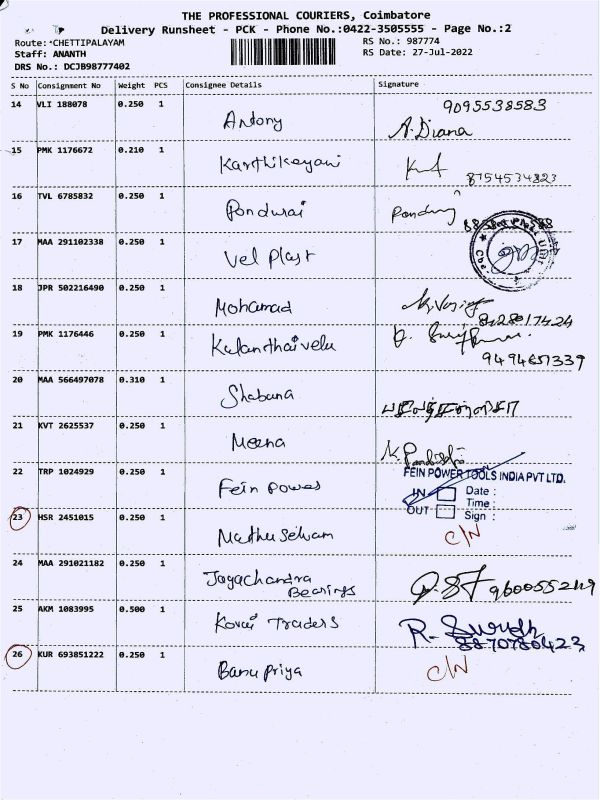 THE PROFESSIONAL COURIERS, Coimbatore
Delivery Runsheet - PCK - Phone No.:0422-3505555 - Page No.:2
Route: CHETTIPALAYAM RS No.: 987774
Staff: ANANTH RS Date: 27-Jul-2022
DRS No.: DCJB98777402
S No Consignment No Weight PCS Consignee Details Signature
14 VLI 188078 0.250 1 Antony 9095538583
A. Diana
15 PMK 1176672 0.210 1 Karthikeyani
8754534823
16 TVL 6785832 0.250 1 Pondurai
17 MAA 291102338 0.250 1 Vel Plast
18 JPR 502216490 0.250 1 Mohamad
8428017424
19 PMK 1176446 0.250 1 Kulanthaivelu
9494657339
20 MAA 566497078 0.310 1 Shabana
21 KVT 2625537 0.250 1 Meena
22 TRP 1024929 0.250 1 Fein Power
FEIN POWER TOOLS INDIA PVT LTD.
IN Date :
Time :
OUT Sign :
23 HSR 2451015 0.250 1 Muthu Selvam C/N
24 MAA 291021182 0.250 1 Jayachandra
Bearings
25 AKM 1083995 0.500 1 Kovai Traders
8870780423
26 KUR 693851222 0.250 1 Banu Priya C/N